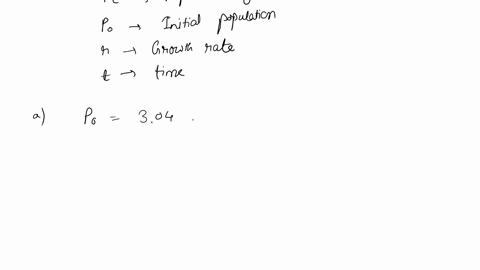 P₀ → Initial population
r → Growth rate
t → time
a) P₀ = 3.04